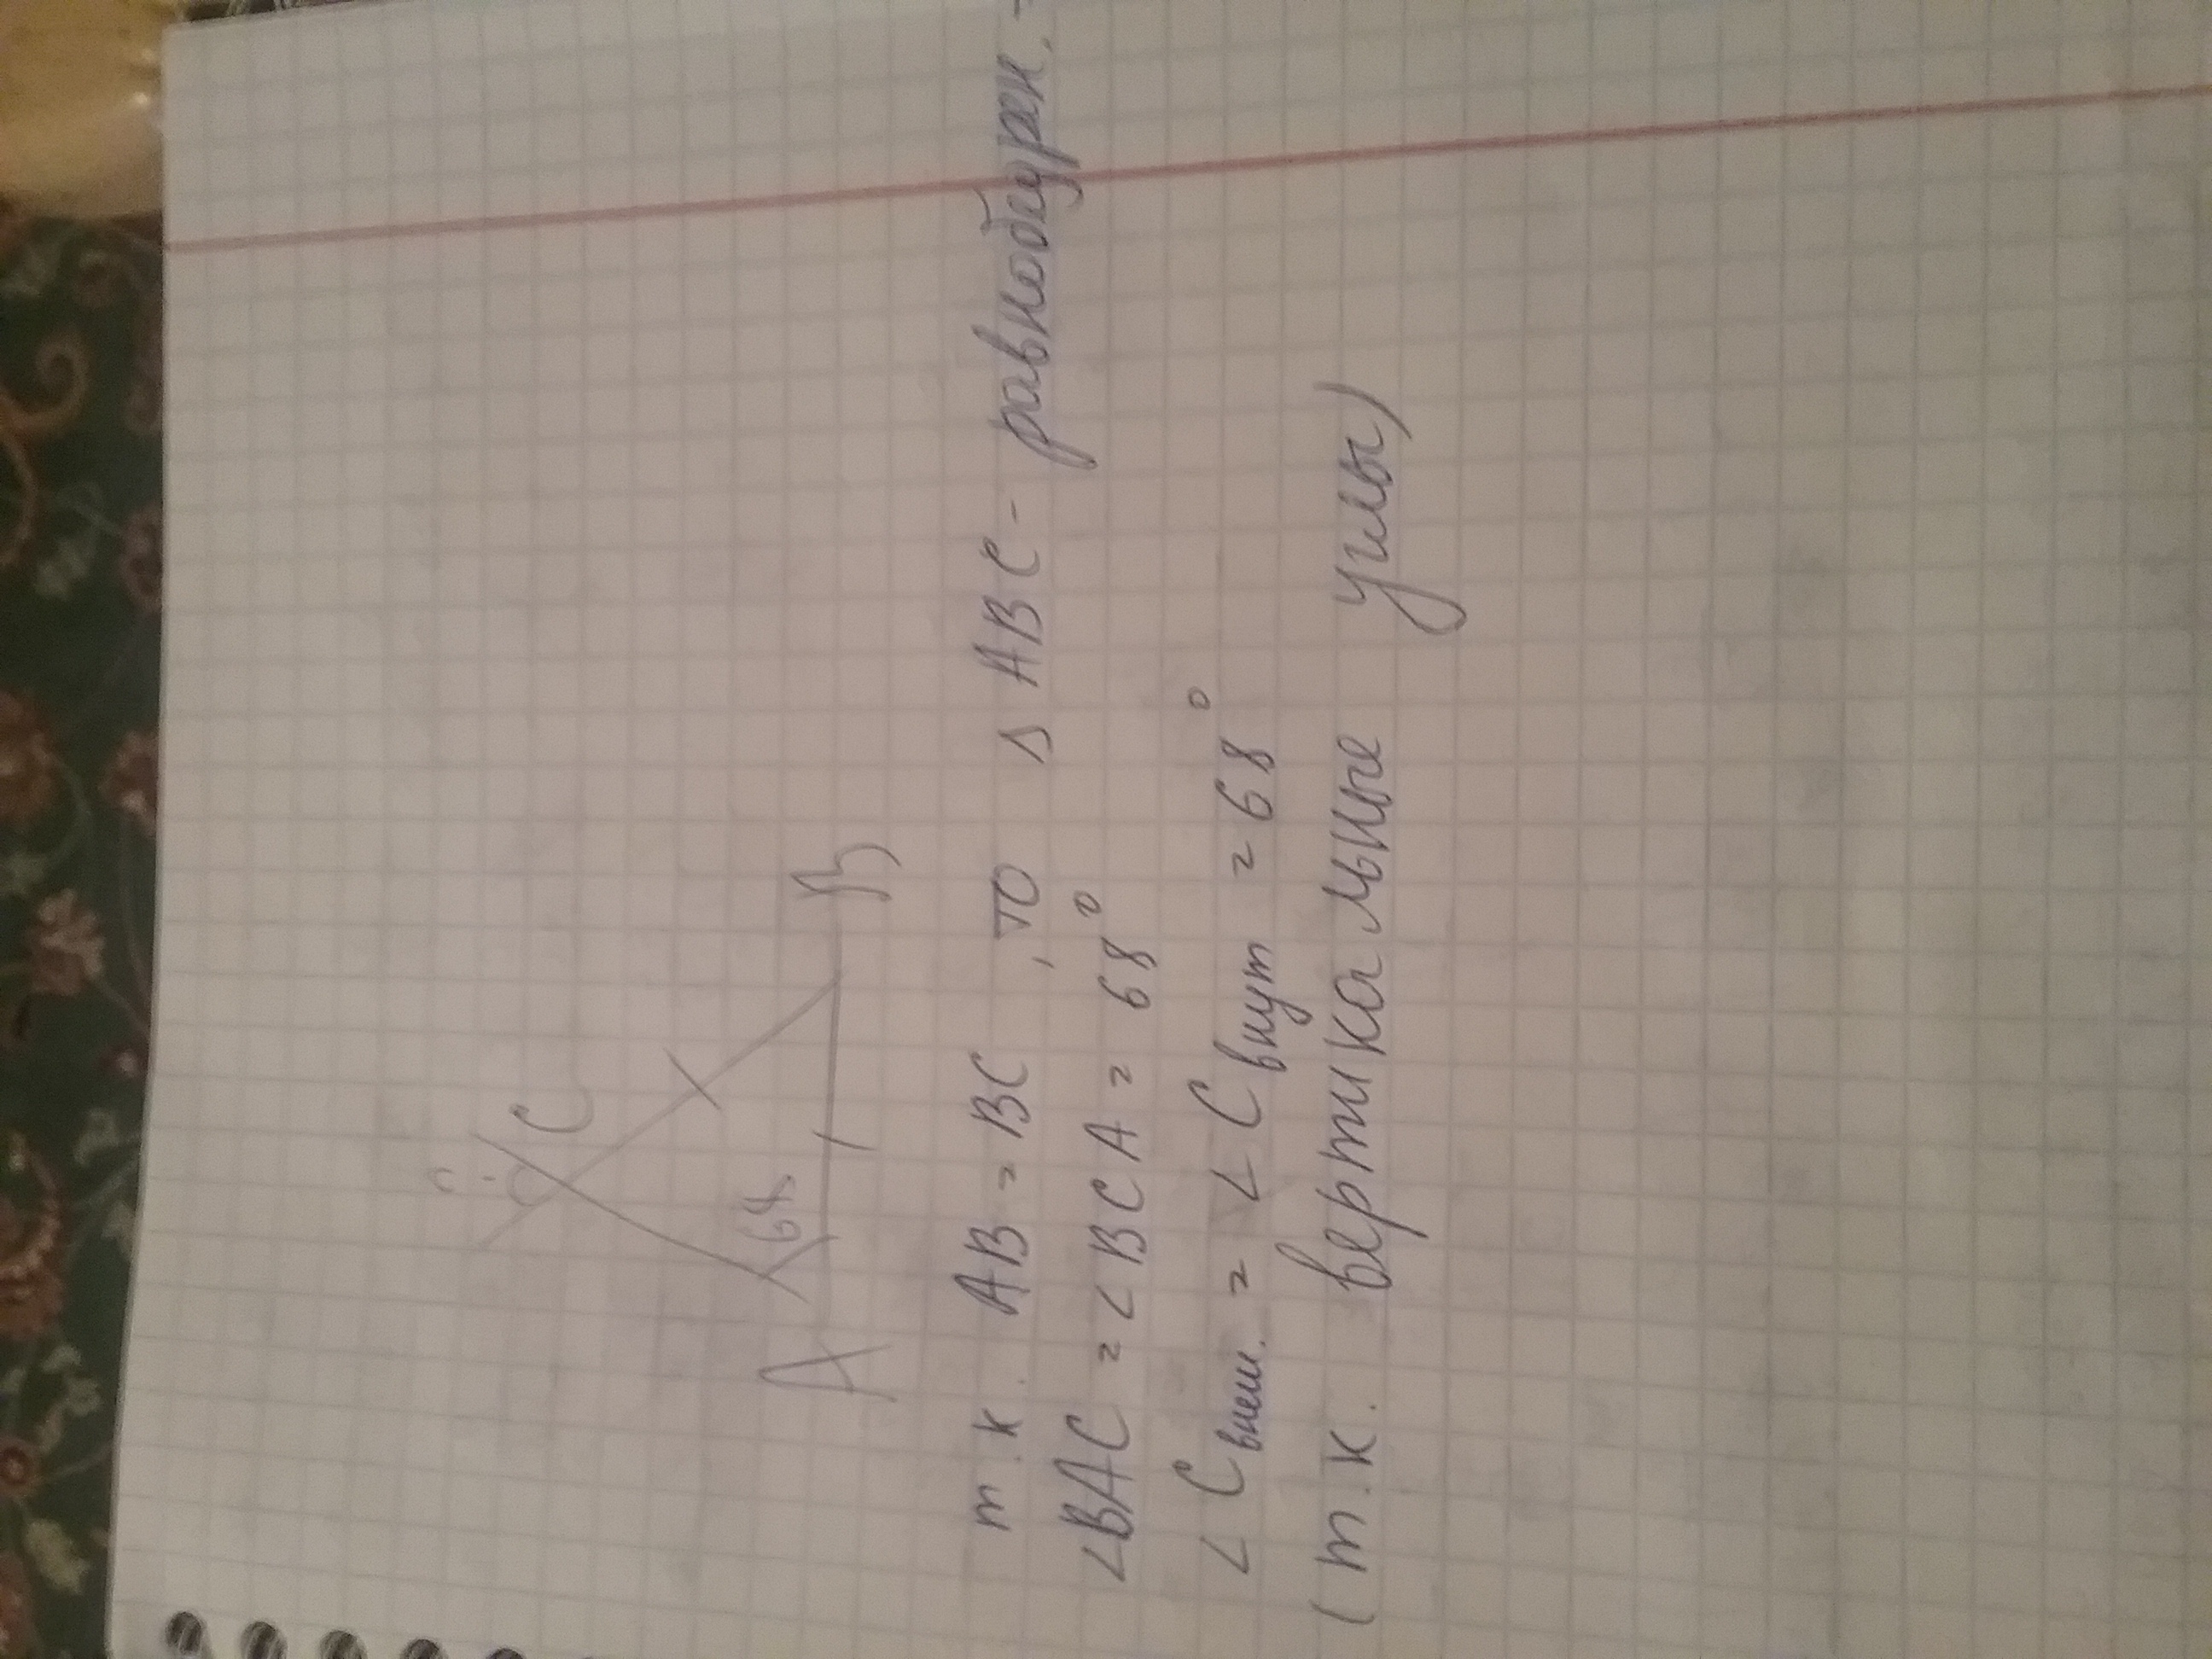 C
68
A
B
т.к. AB = BC, то Δ ABC - равнобедрен.
∠BAC = ∠BCA = 68°
∠C внеш. = ∠C внут = 68°
(т.к. вертикальные углы)